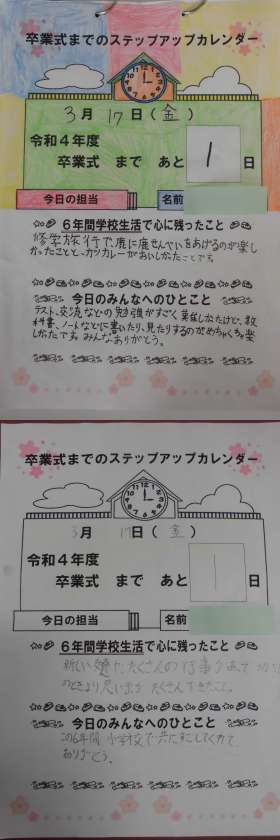 卒業式までのステップアップカレンダー
3月 17日(金)
令和4年度
卒業式 まで あと 1 日
今日の担当 名前
6年間学校生活で心に残ったこと
修学旅行で鹿に鹿せんべいをあげるのが楽し
かったことと、カツカレーがおいしかったことです。
今日のみんなへのひとこと
テスト、交流などの勉強がすごく美化したけど、教
科書、ノートなどに書いたり、見たりするのがめちゃくちゃ楽
しかったです。みんなありがとう。
卒業式までのステップアップカレンダー
3月 17日(金)
令和4年度
卒業式 まで あと 1 日
今日の担当 名前
6年間学校生活で心に残ったこと
新しい たくさんの行事
のとき より 思い出が たくさんできたこと。
今日のみんなへのひとこと
この6年間 小学校で共にすごしてくれて
ありがとう。